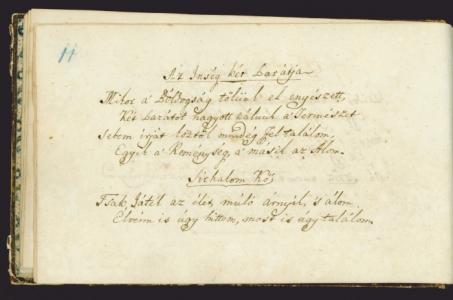 11
Az Inség két barátja
Mikor a Bóldogság tőlünk el enyészett,
Két barátot hagyott nálunk a Természet
ezektöl mindég feltalálom,
Egyik a Reménység, a másik az Álom.
Sirhalom Kő
Tsak Játék az élet, múló árnyék, 's álom.
Éltem is úgy hittem, most is úgy találom.